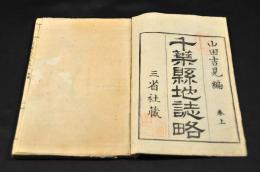 山田吉見編
卷上
千葉縣地誌略
三省社藏